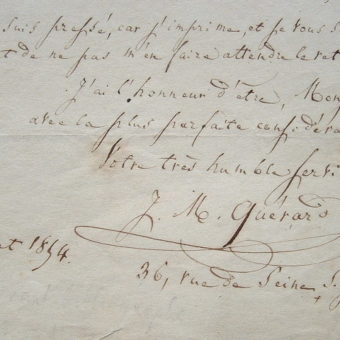 suis pressé, car j'imprime, et je vous s
t de ne pas m'en faire attendre le ret
J'ai l'honneur d'être, Mon
avec la plus parfaite considéra
Votre très humble servi
J. M. Quérard
et 1854.
36, rue de Seine S.